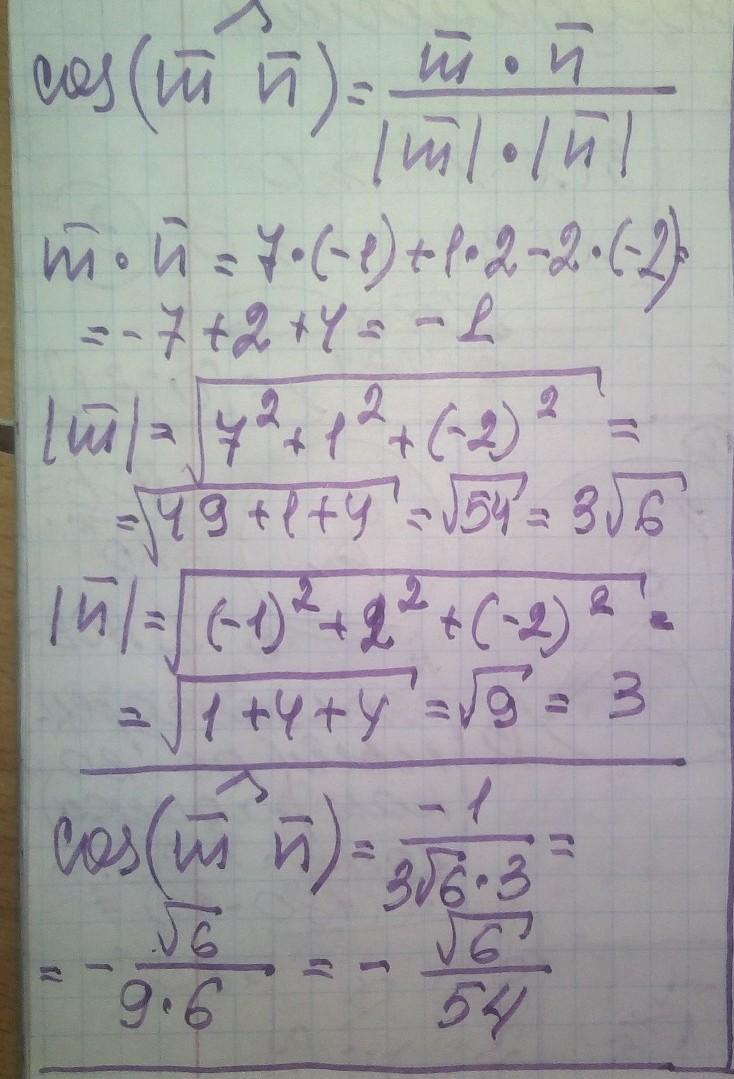 cos(m̄ ^ n̄) = (m̄ · n̄) / (|m̄| · |n̄|)
m̄ · n̄ = 7·(-1)+1·2-2·(-2)=
= -7+2+4 = -1
|m̄| = √(7² + 1² + (-2)²) =
= √(49+1+4) = √54 = 3√6
|n̄| = √((-1)² + 2² + (-2)²) =
= √(1+4+4) = √9 = 3
cos(m̄ ^ n̄) = -1 / (3√6·3) =
= - √6 / (9·6) = - √6 / 54